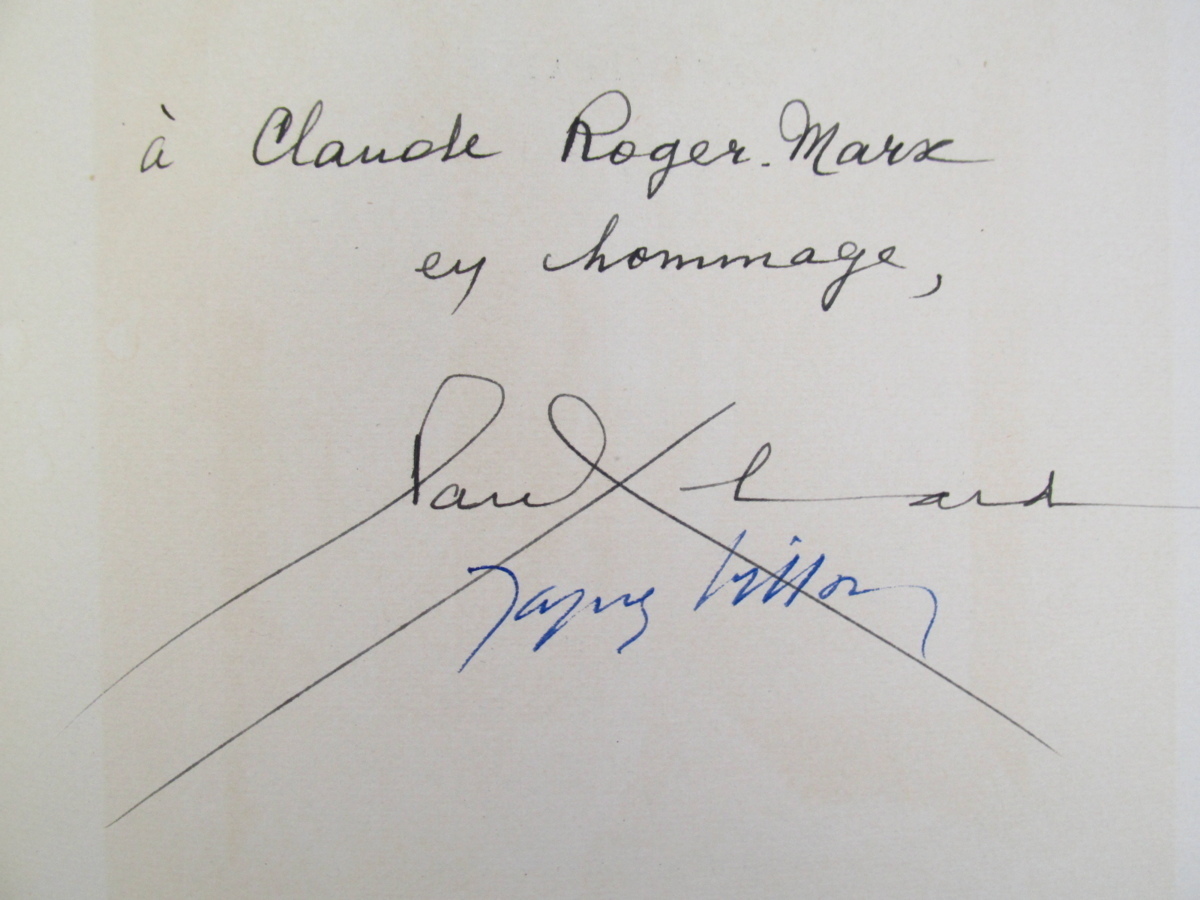 à Claude Roger-Marx
en hommage,
Paul Éluard
Jacques Villon